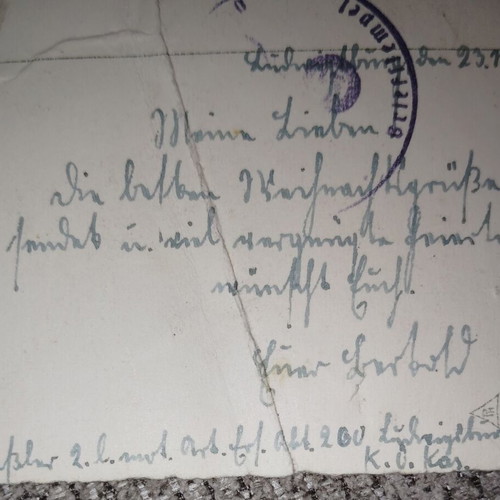 Ludwigsburg den 23.1
Meine Lieben
Die besten Weihnachtsgrüße
sendet u. viel vergnügte Feierta
wünscht Euch.
Euer Berthold
ßler 2. l. mot. Art. Ers. Abt. 260 Ludwigsbu
K. O. Kas.